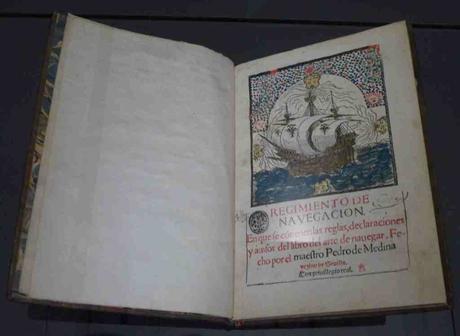 REGIMIENTO DE
NAVEGACION.
En que se contienen las reglas, declaraciones
y auisos del libro del arte de nauegar. Fe-
cho por el maestro Pedro de Medina
vezino de Seuilla.
Con preuilegio real.